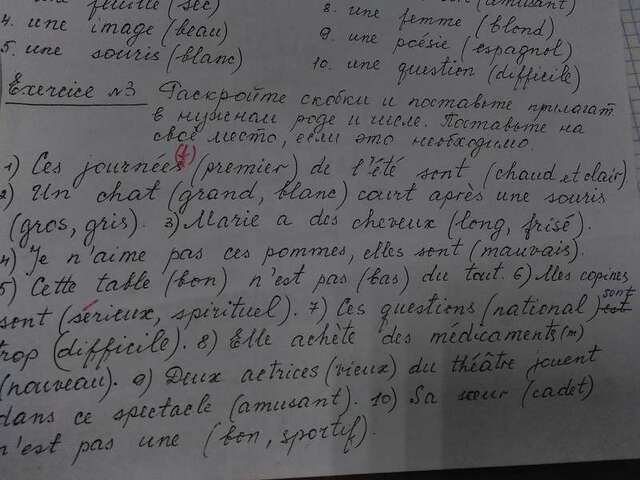 une feuille (sec)
4. une image (beau)
5. une souris (blanc)
(amusant)
8. une femme (blond)
9. une poésie (espagnol)
10. une question (difficile)
Exercice №3 Раскройте скобки и поставьте прилагат.
в нужном роде и числе. Поставьте на
своё место, если это необходимо.
1) Ces journées (f) (premier) de l'été sont (chaud et clair).
2) Un chat (grand, blanc) court après une souris
(gros, gris). 3) Marie a des cheveux (long, frisé).
4) Je n'aime pas ces pommes, elles sont (mauvais).
5) Cette table (bon) n'est pas (bas) du tout. 6) Mes copines
sont (sérieux, spirituel). 7) Ces questions (national) sont est
trop (difficile). 8) Elle achète des médicaments (m)
(nouveau). 9) Deux actrices (vieux) du théâtre jouent
dans ce spectacle (amusant). 10) Sa sœur (cadet)
n'est pas une (bon, sportif).